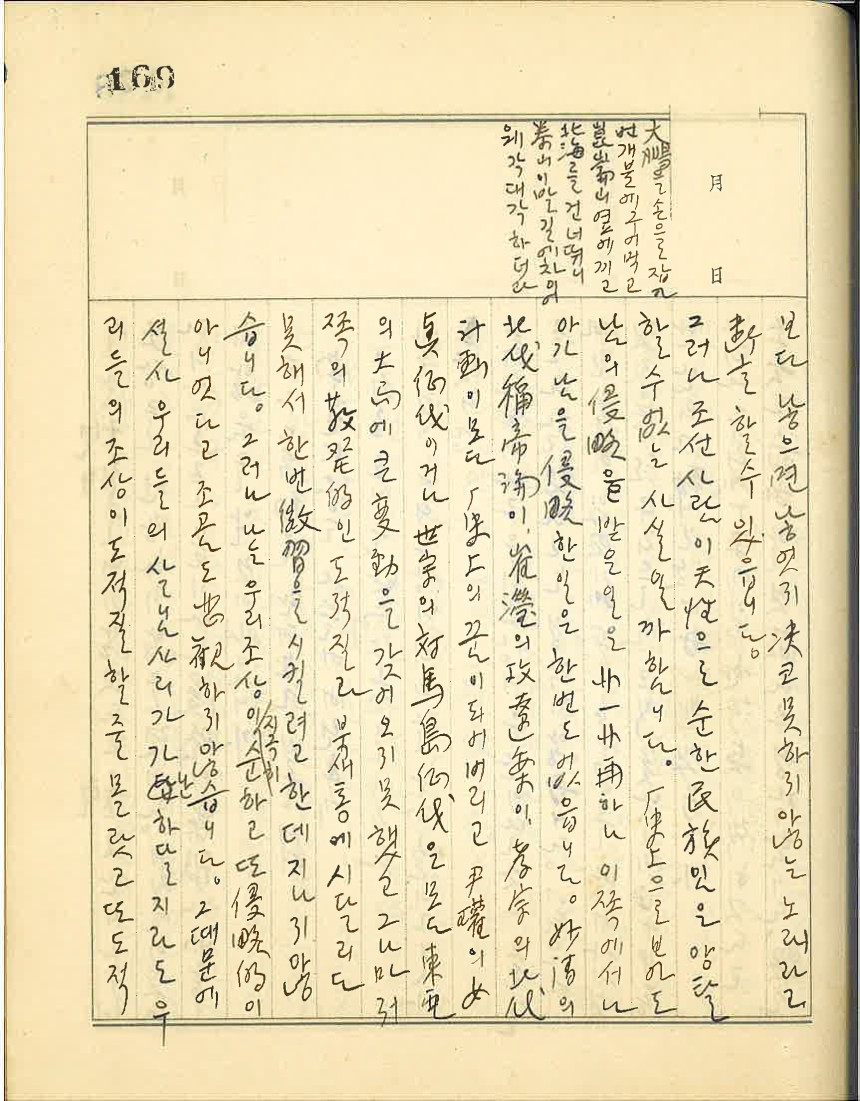 169
月 日
大鵬을 손으로 잡아
번개불에 구어먹고
崑崙山 옆에 끼고
北海를 건너뛰니
泰山이 발길에 차이어
왜각대각 하더라
보다 낳으면 낳엇지 决코 못하지 않는 노래라고
斷言할수 있읍니다
그러나 조선사람이 天性으로 순한 民族임은 앙탈
할 수 없는 사실일까 함니다。 厂史上으로 보아도
남의 侵略을 받은 일은 非一非再하나 이쪽에서 나
아가 남을 侵略한 일은 한번도 없읍니다。 妙淸의
北伐稱帝論이、崔瑩의 攻遼策이、孝宗의 北伐
計劃이 모다 厂史上의 끝이 되어버리고 尹瓘의 女
眞征伐이거나 世宗의 対馬島征伐은 모다 東亞
의 大局에 큰 変動을 갖어오지 못했고 그나마 저
쪽의 散発的인 도적질과 분새통에 시달리다
못해서 한번 徵習을 시킬려고 한데 지나지 않
습니다。 그러나 나는 우리 조상이 지극히 순하고 또 侵略的이
아니엇다고 조곰도 悲觀하지 않습니다。 그때문에
설사 우리들의 살님사리가 가난하다 할지라도 우
리들의 조상이 도적질 할줄 몰랏고 또 도적